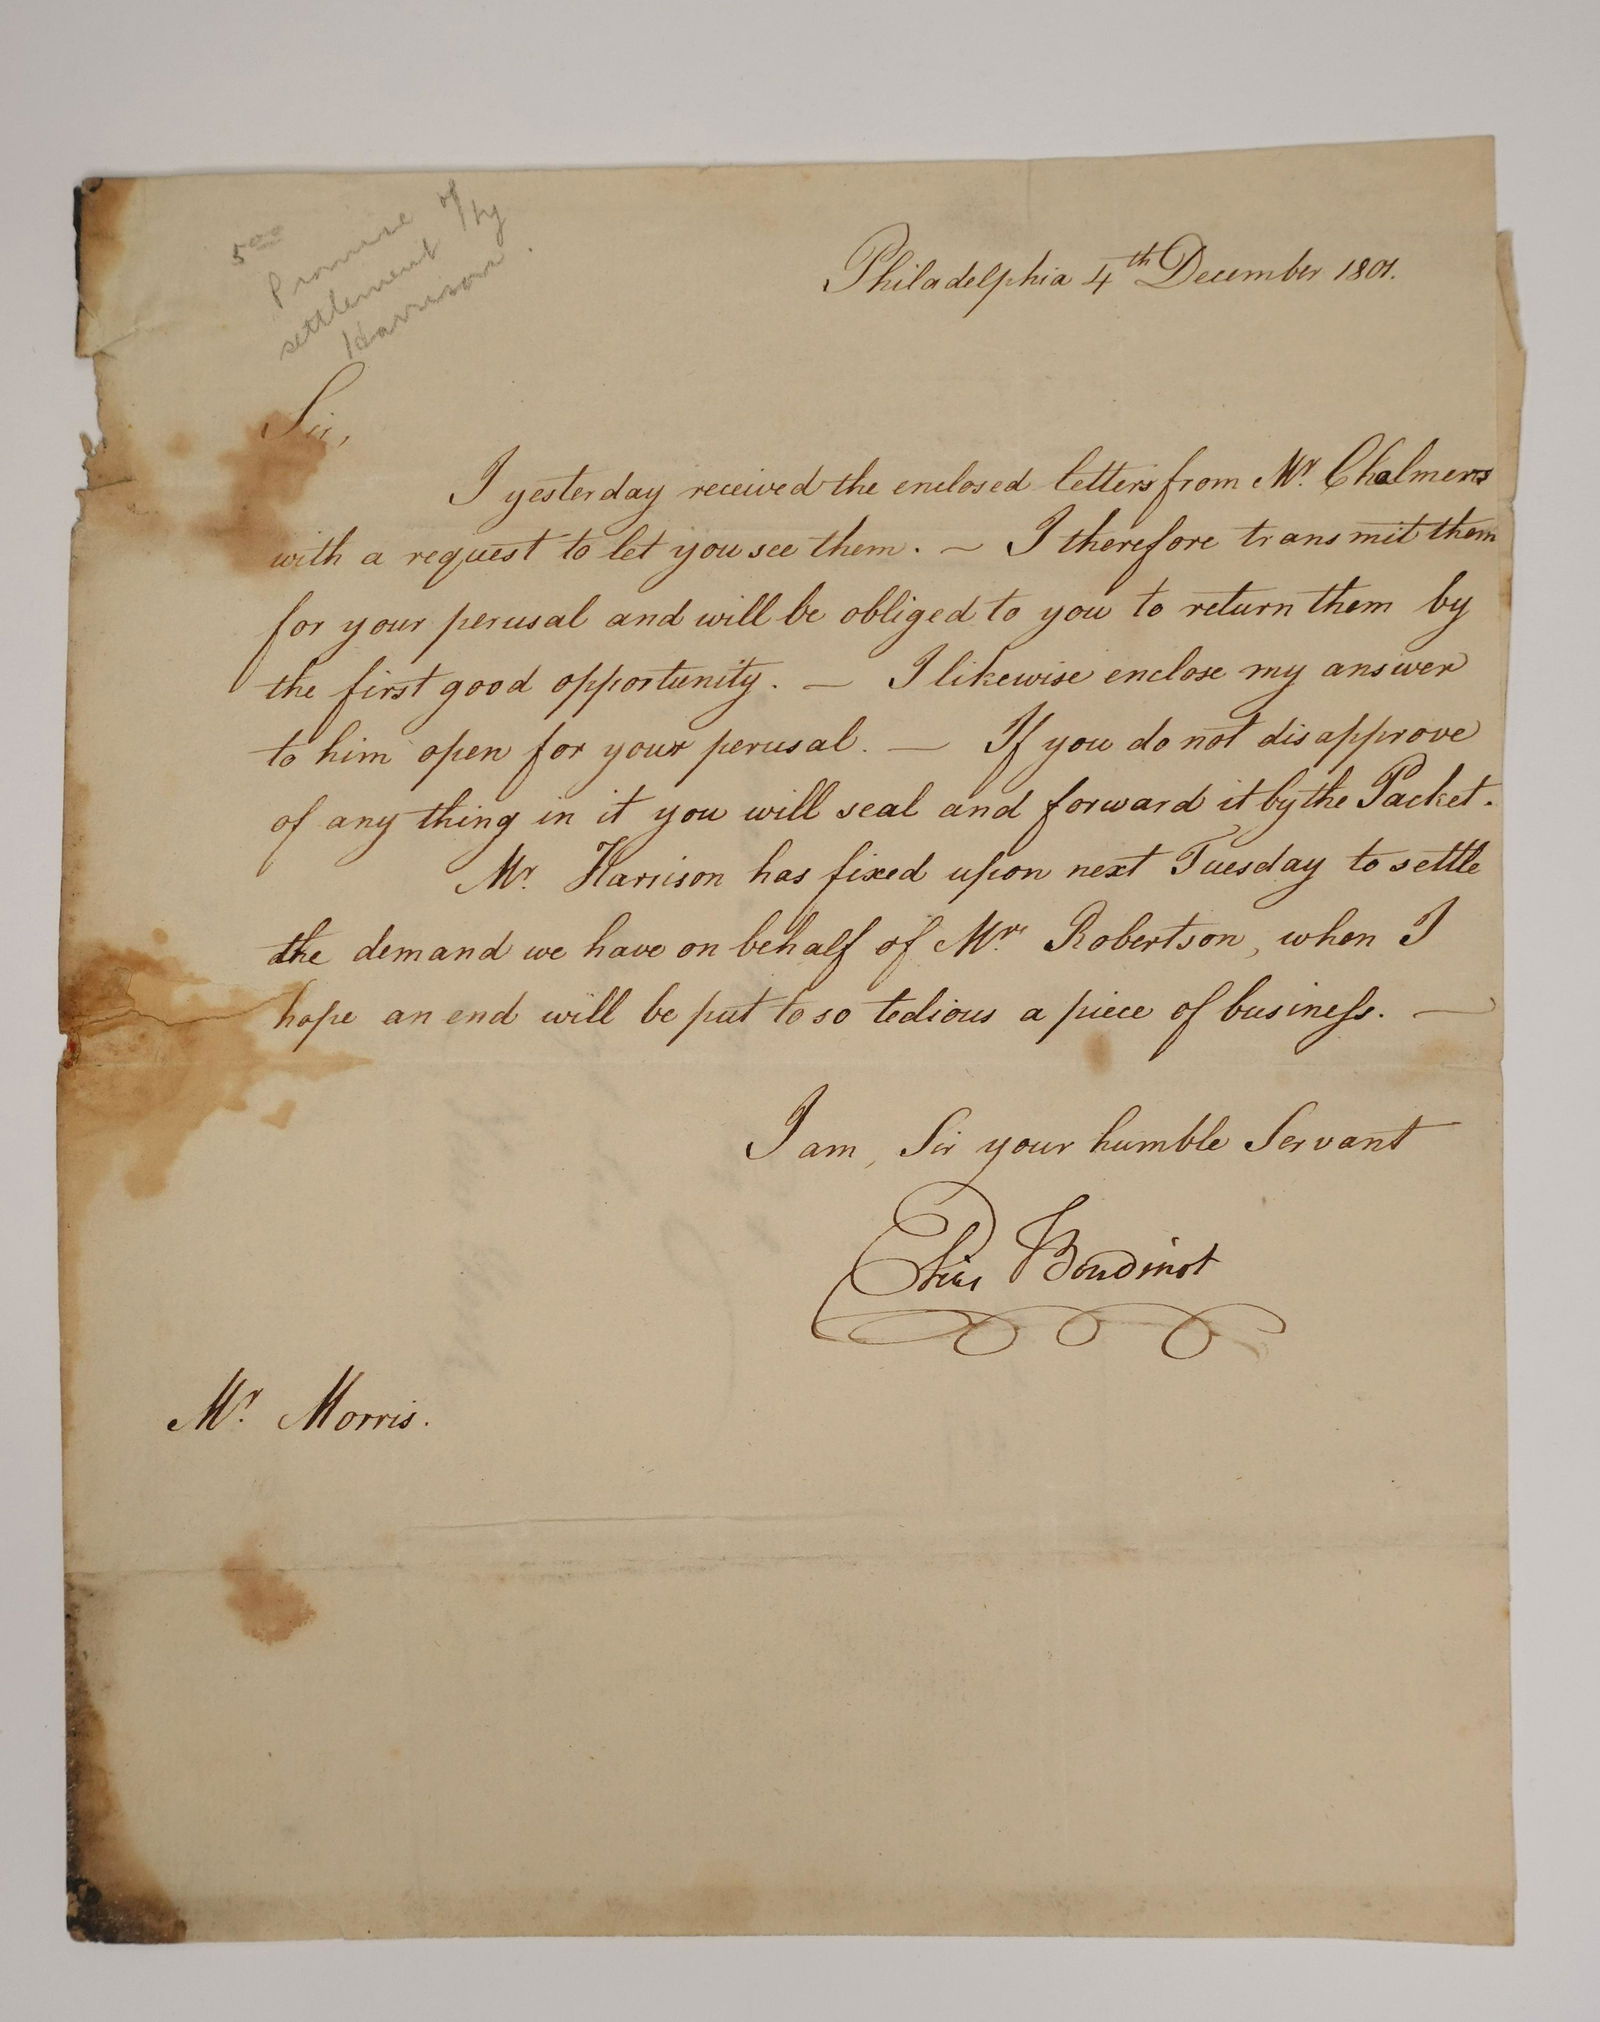 5⁰⁰
Promise of
settlement by
Harrison.
Philadelphia 4th December 1801.
Sir,
I yesterday received the enclosed letters from Mr. Chalmers
with a request to let you see them. — I therefore transmit them
for your perusal and will be obliged to you to return them by
the first good opportunity. — I likewise enclose my answer
to him open for your perusal. — If you do not disapprove
of any thing in it you will seal and forward it by the Packet.
Mr. Harrison has fixed upon next Tuesday to settle
the demand we have on behalf of Mrs. Robertson, when I
hope an end will be put to so tedious a piece of busineſs. —
I am, Sir your humble Servant
Elias Boudinot
Mr. Morris.